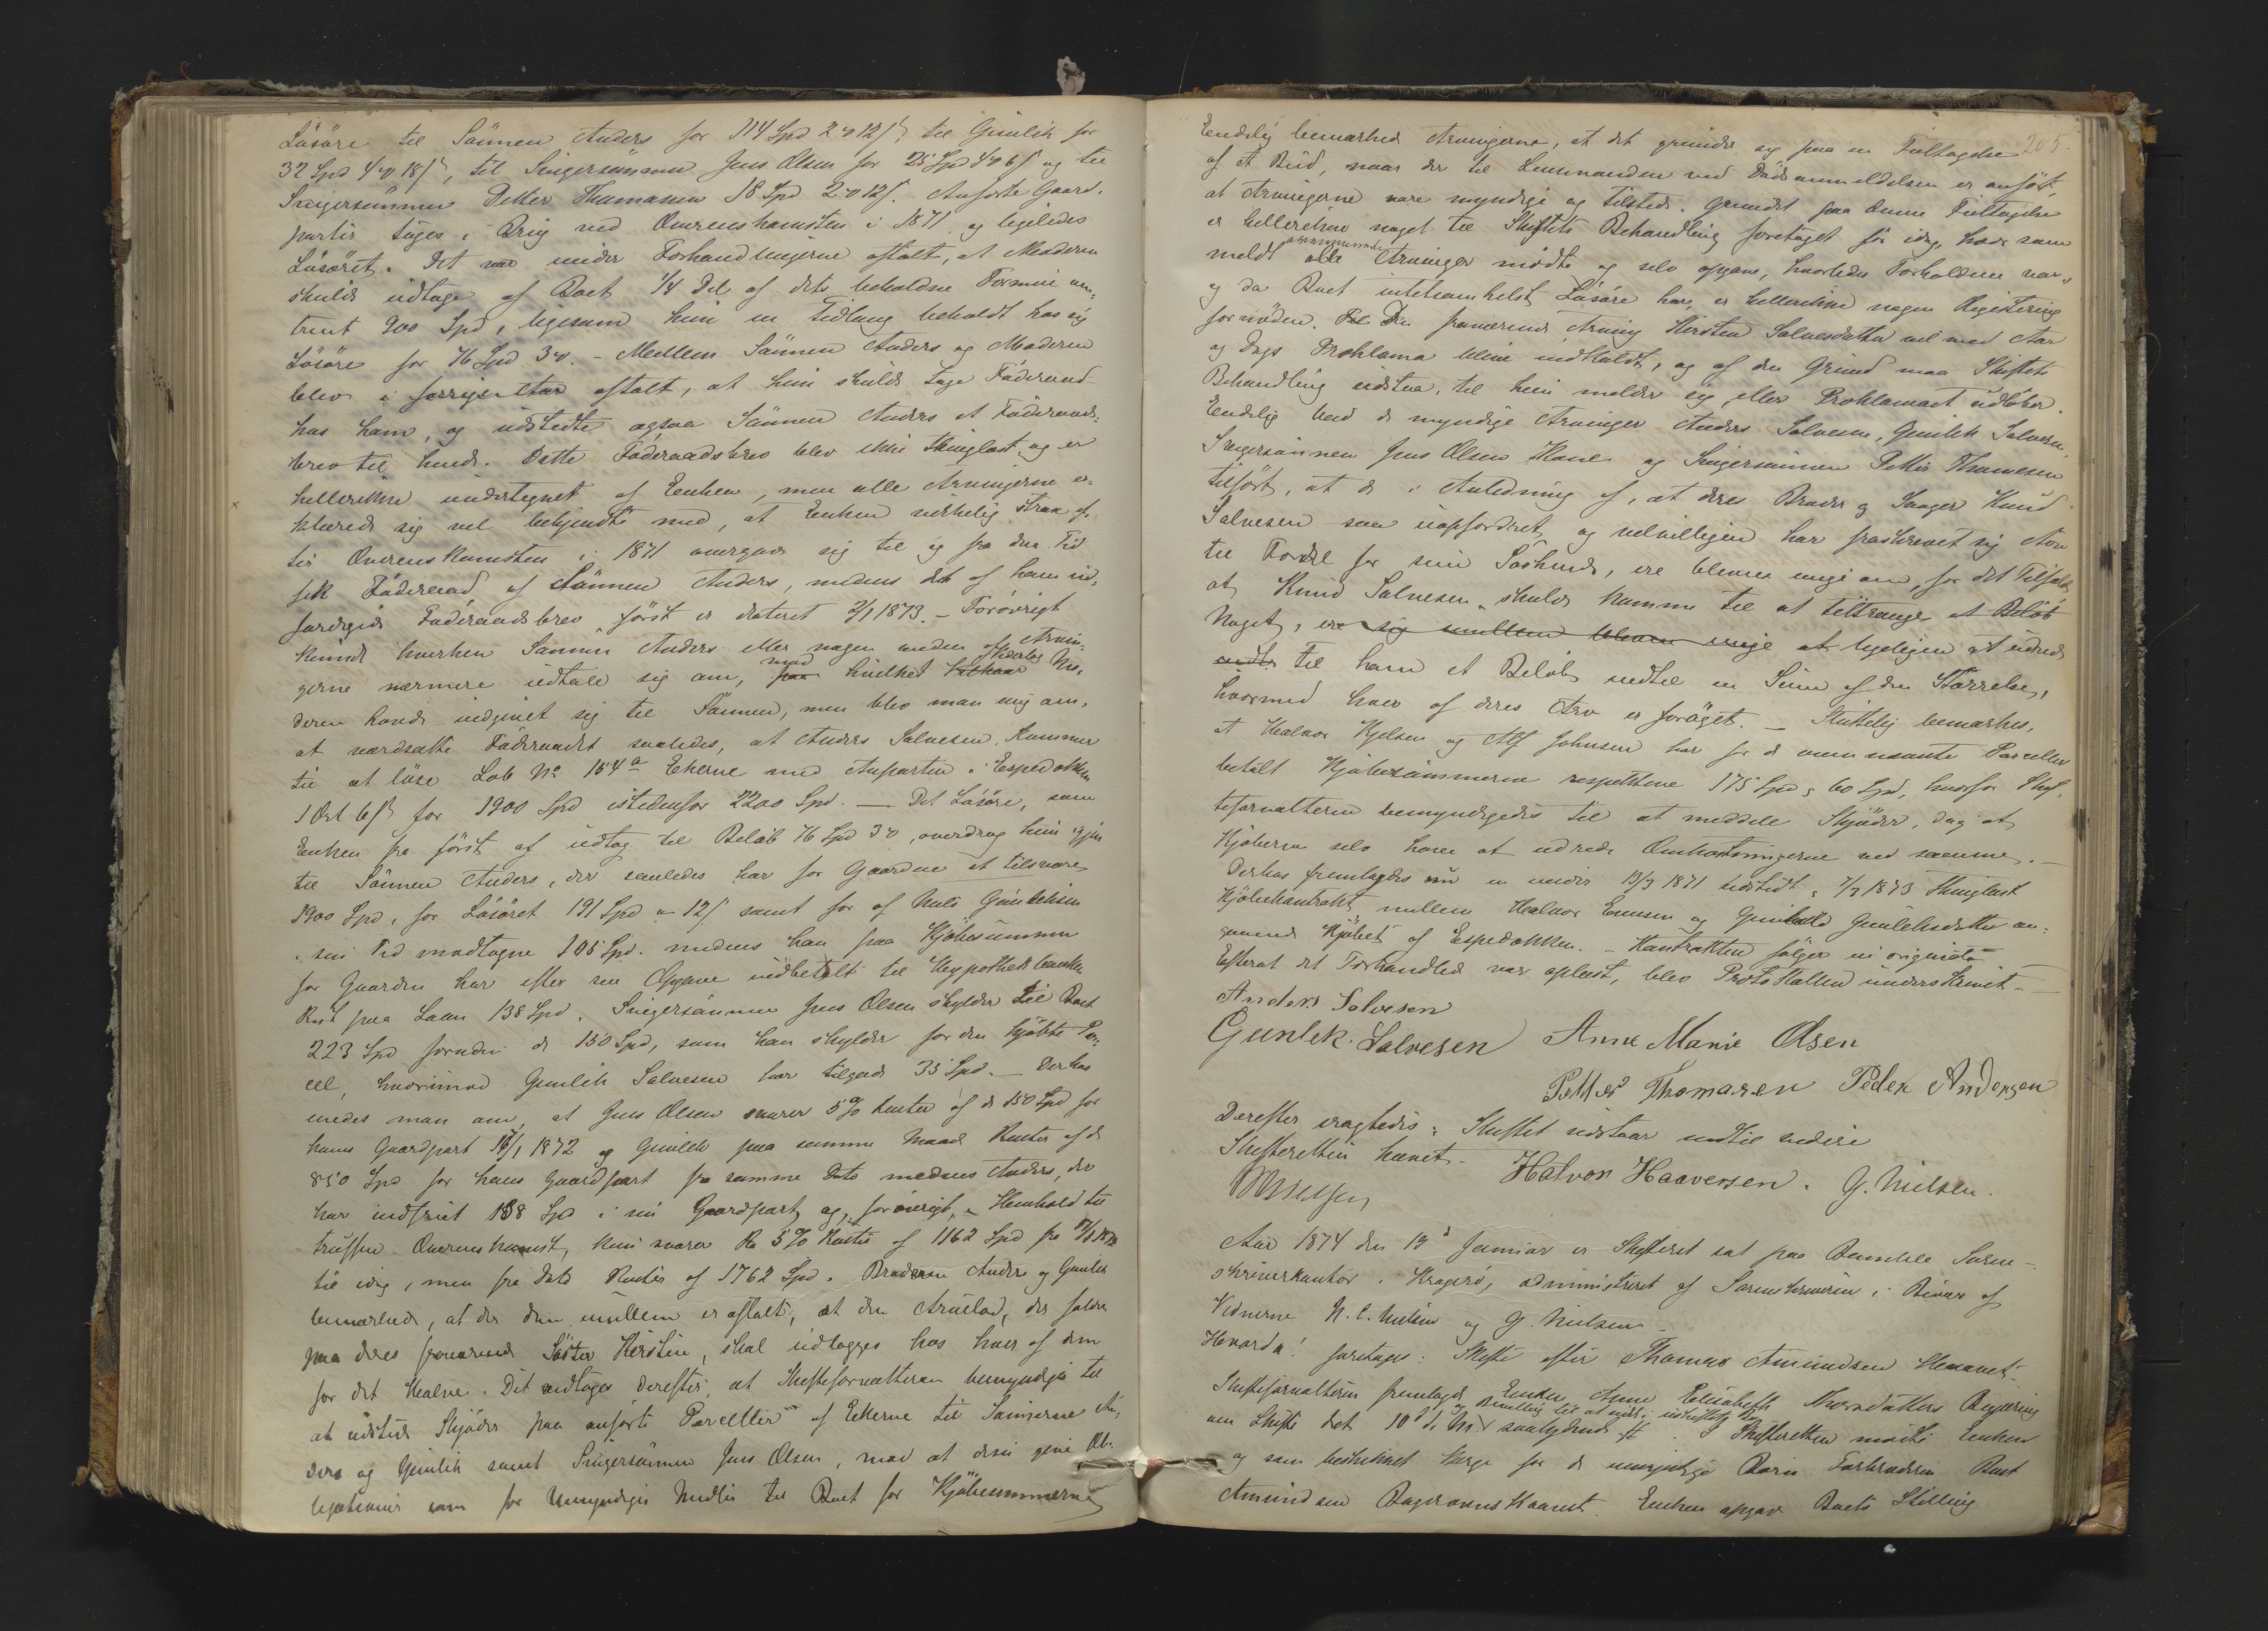 Løsøre til Sønnen Anders for 114 Spd 2 12 ß, til Gunlek for
32 Spd 4 18 ß, til Svigersønnen Jens Olsen for 25 Spd 4 6 ß og til
Svigersønnen Petter Thomasen 18 Spd 2 12 ß. Anførte Gaard-
parter toges i Brug ved Overenskomsten i 1871 og ligeledes
Løsøret. Det var under Forhandlingerne aftalt, at Moderen
skulde udtage af Boet 1/4 Del af dets beholdne Formue om-
trent 900 Spd, ligesom hun en Tidlang beholdt hos sig
Løsøre for 76 Spd 3. - Mellem Sønnen Anders og Moderen
blev i forrige Aar aftalt, at hun skulde tage Føderaad
hos ham, og udstedte ogsaa Sønnen Anders et Føderaads-
brev til hende. Dette Føderaadsbrev blev ikke thinglæst og er
hellerikke undertegnet af Enken, men alle Arvingerne er-
klærede sig vel bekjendte med, at Enken virkelig strax ef-
ter Overenskomsten i 1871 overgav sig til og fra den Tid
fik Føderaad af Sønnen Anders, medens det af ham ud-
færdigede Føderaadsbrev først er dateret 2/1 1873. - Forøvrigt
kunde hverken Sønnen Anders eller nogen anden af Arvin-
gerne nærmere udtale sig om, med hvilket Vederlag Mo-
deren havde indgivet sig til Sønnen, men blev man enig om,
at værdsætte Føderaadet saaledes, at Anders Salvesen kommer
til at løse Løb No 154a Ekerne med Anparten i Espedokken
1 Ort 6 ß for 1900 Spd istedenfor 2200 Spd. - Det Løsøre, som
Enken fra først af udtog til Beløb 76 Spd 3, overdrog hun igjen
til Sønnen Anders, der saaledes har for Gaarden at tilsvare
1900 Spd, for Løsøret 191 Spd - 12 ß samt for af Nils Gunleksen
i sin Tid modtagne 105 Spd. medens han paa Kjøbesummen
for Gaarden har efter sin Opgave indbetalt til Hypothekbanken
Rest paa Laan 138 Spd. Svigersønnen Jens Olsen skylder til Boet
223 Spd foruden de 150 Spd, som han skylder for den kjøbte Par-
cel, hvorimod Gunlek Salvesen har tilgode 35 Spd. - Derhos
enedes man om, at Jens Olsen svarer 5 % Renter af de 150 Spd for
hans Gaardpart 1872 og Gunlek paa samme Maade Renter af de
850 Spd for hans Gaardpart fra samme Dato medens Anders, der
har indfriet 138 Spd i sin Gaardpart og, forøvrigt, i Henhold til
truffen Overenskomst, kun svarer 5 % Renter af 1162 Spd fra
til idag, men fra Dato Renter af 1762 Spd. Brødrene Anders og Gunlek
bemærkede, at der dem imellem er aftalt, at den Arvelod, der falder
paa deres fraværende Søster Kirsten, skal udlægges hos hver af dem
for det Halve. Det vedtoges derefter, at Skifteforvalteren bemyndiges til
at udstede Skjøder paa anførte Parceller af Ekerne til Sønnerne An-
ders og Gunlek samt Svigersønnen Jens Olsen, mod at disse give Ob-
ligationer som for Umyndiges Midler til Boet for Kjøbesummerne
205.
Endelig bemærkede Arvingerne, at det grunder sig paa en Feiltagelse
af et Bud, naar der til Lensmanden ved Dødsanmeldelsen er anført,
at Arvingerne vare myndige og tilstede. Grundet paa denne Feiltagelse
er hellerikke noget til Skiftets Behandling foretaget før idag, hvor som
meldt alle Arvinger mødte og selv opgave, hvorledes Forholdene var,
og da Boet intetsomhelst Løsøre har, er hellerikke nogen Registering
fornøden. Den fraværende Arving Kirsten Salvesdatter vil med Aar
og Dags Proklama blive indkaldt, og af den Grund maa Skiftets
Behandling udstaa, til hun melder sig eller Proklamaet udløber.
Endelig bad de myndige Arvinger Anders Salvesen, Gunlek Salvesen,
Svigersønnen Jens Olsen Kane og Svigersønnen Petter Thomesen
tilført, at de i Anledning af, at deres Broder og Svoger Knud
Salvesen saa uopfordret og velvilligen har fraskrevet sig Arv
til Fordel for sine Søskende, ere blevne enige om, for det Tilfælde
at Knud Salvesen skulde komme til at tiltrænge et Beløb
Noget, ere sig imellem blevne enige at ligeligen at udrede
til ham et Beløb indtil en Sum af den Størrelse,
hvormed hver af deres Arv er forøget. - Sluttelig bemærkes,
at Halvor Kjelsen og Alf Johnsen har for de ommeldte Parceller
betalt Kjøbesummerne respektive 175 Spd og 60 Spd, hvorfor Skif-
teforvalteren bemyndigedes til at meddele Skjøder, dog at
Kjøberne selv have at udrede Omkostningerne ved samme. -
Derhos fremlagdes nu en under 13/3 1871 udstedt, 7/3 1873 thinglæst
Kjøbekontrakt mellem Halvor Evensen og Gunhild Gunleksdatter an-
gaaende Kjøbet af Espedokken. - Kontrakten følger in originali
Efterat det Forhandlede var oplæst, blev Protokollen underskrevet. -
Anders Salvesen
Gunlek. Salvesen Anne Marie Olsen
Petter Thomasen Peder Andersen
Derefter eragtedes: Skiftet udstaar indtil videre
Skifteretten hævet. -
Halvor Haaversen. G. Nielsen.
Aar 1874 den 19d Januar er Skifteret sat paa Bamble Soren-
skriverkontor i Kragerø, administreret af Sorenskriveren i Bivær af
Vidnerne N. C. Nielsen og G. Nielsen -
Hvorda! foretages: Skifte efter Thomas Amundsen
Skifteforvalteren fremlagde Enken Anne Elisabeth Begjæring
om Skifte af 10d ds saalydende ff. I Skifteretten mødte Enken
og som beskikket Værge for de umyndige Børn Farbroderen
Amundsen Enken opgav Boets Stilling